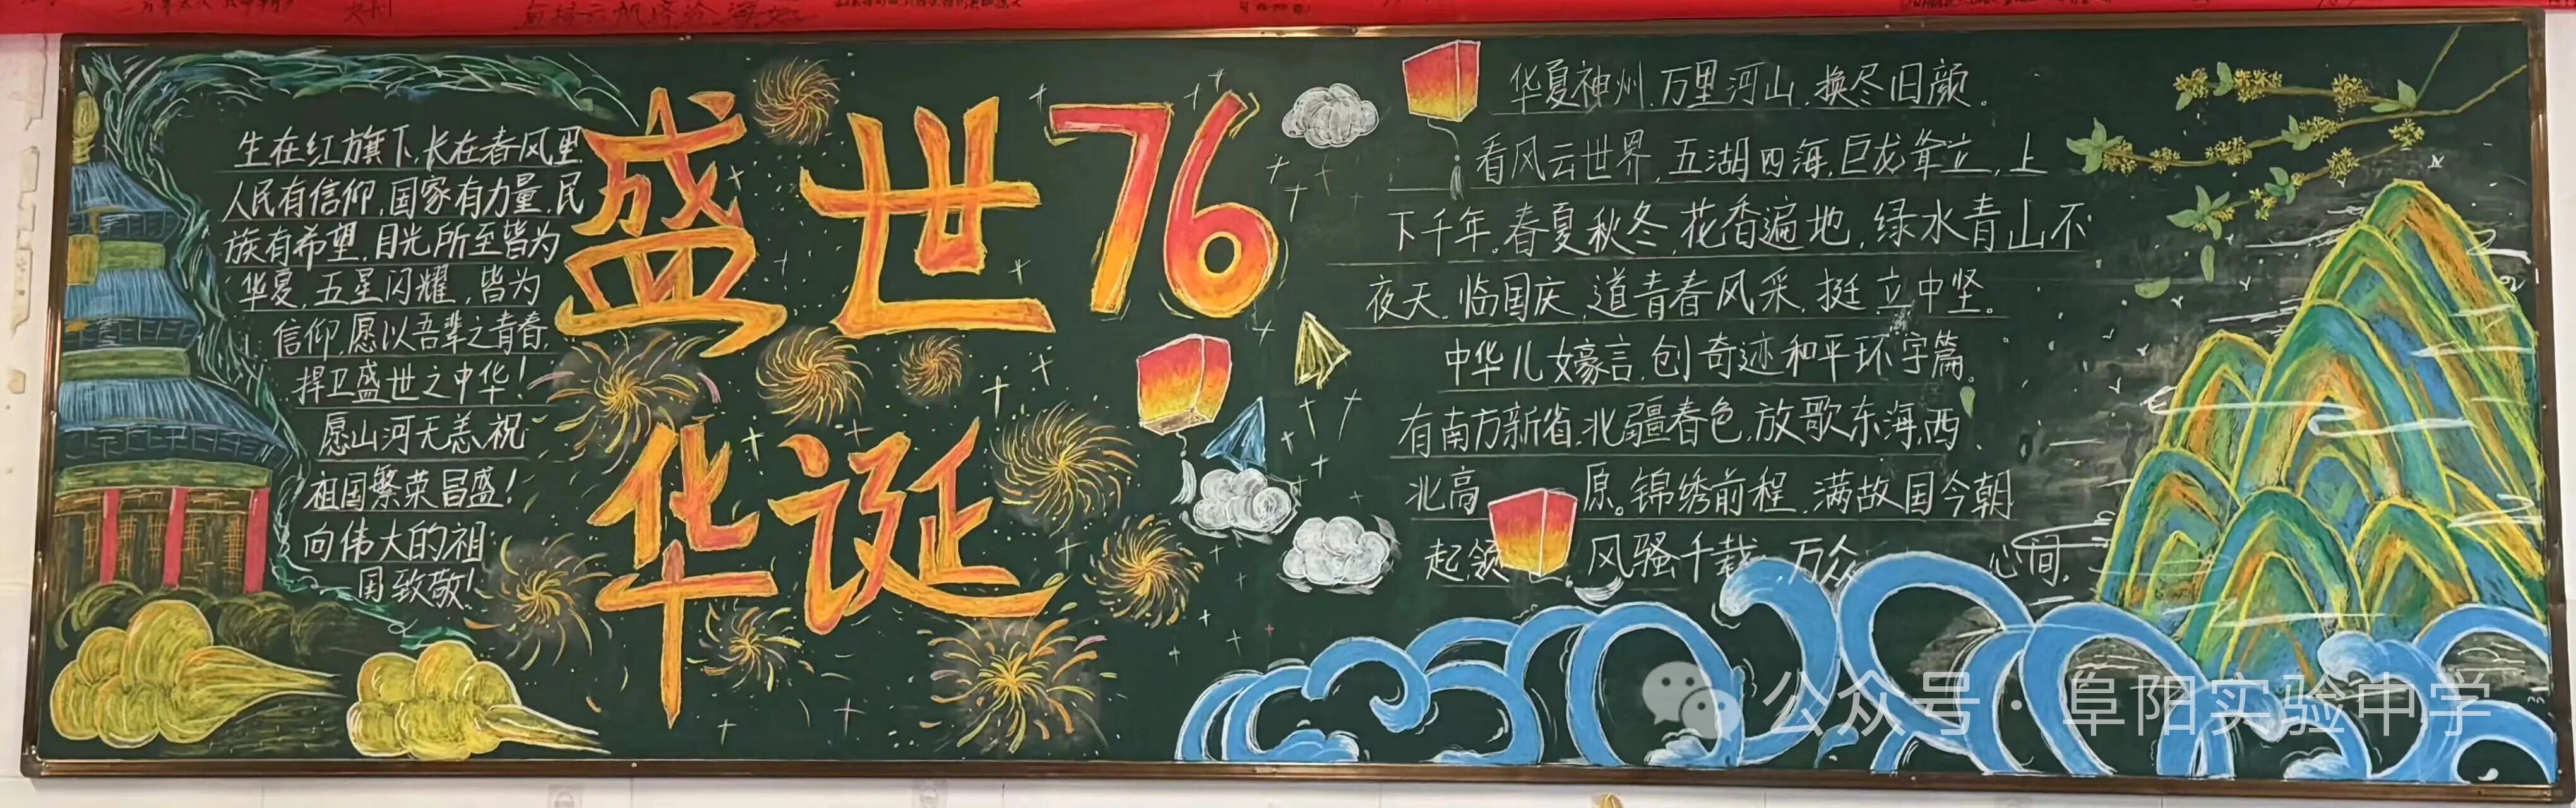 生在红旗下,长在春风里.
人民有信仰,国家有力量,民
族有希望.目光所至皆为
华夏,五星闪耀,皆为
信仰.愿以吾辈之青春,
捍卫盛世之中华!
愿山河无恙,祝
祖国繁荣昌盛!
向伟大的祖
国致敬!
盛世76
华诞
华夏神州.万里河山.换尽旧颜。
看风云世界.五湖四海.巨龙耸立,上
下千年。春夏秋冬,花香遍地,绿水青山不
夜天.临国庆,道青春风采.挺立中坚。
中华儿女豪言.创奇迹和平环宇篇。
有南方新省.北疆春色.放歌东海,西
北高原。锦绣前程.满故国今朝
起.领风骚千载.万众心间.
公众号·阜阳实验中学